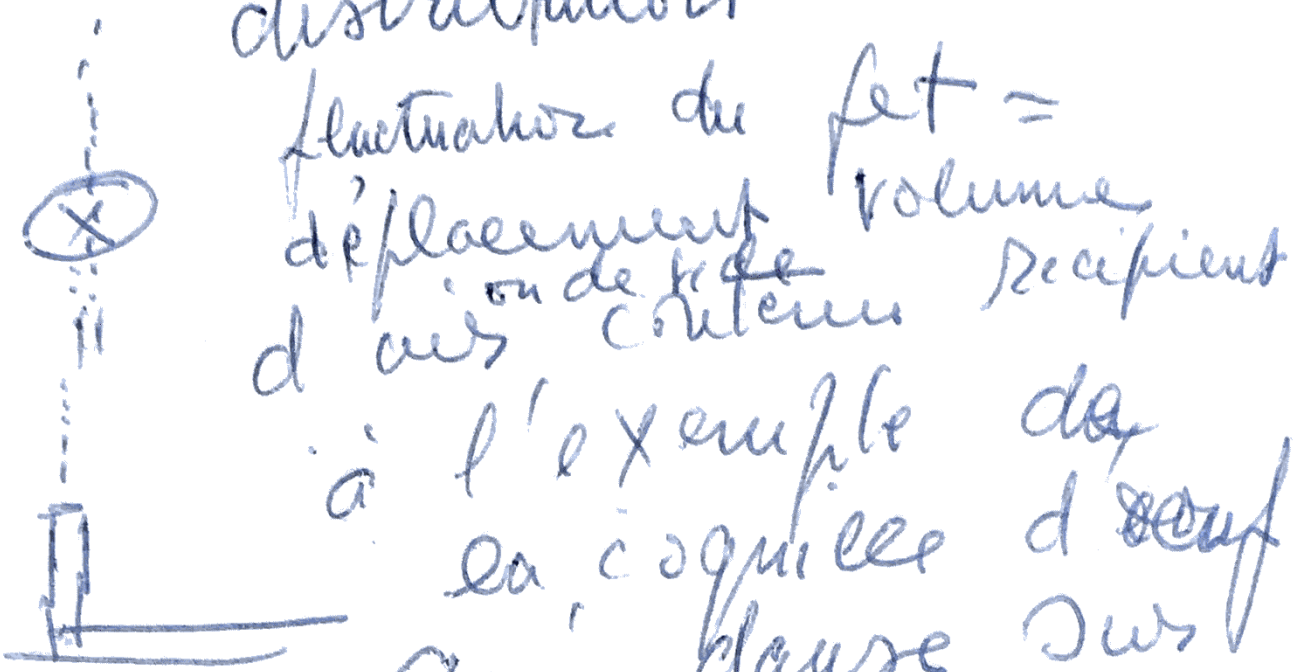 distribution
fluctuation du jet =
déplacement volume
ou de
d'air contenu récipient
à l'exemple de
la coquille d'oeuf
danse sur